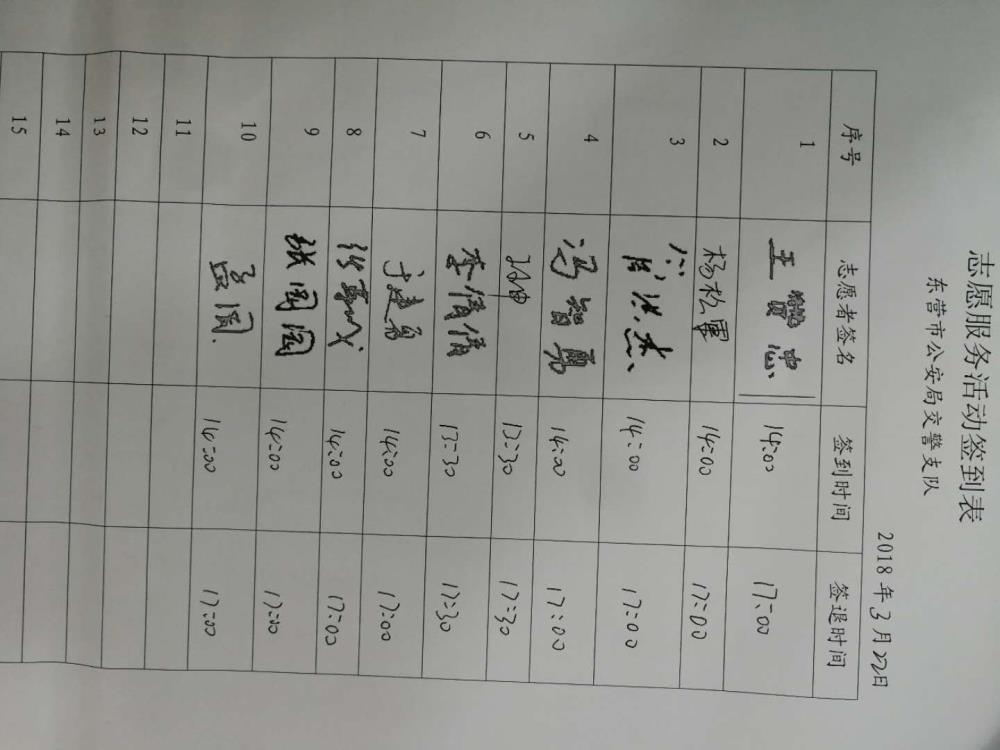 志愿服务活动签到表
东营市公安局交警支队
2018年3月22日
序号 志愿者签名 签到时间 签退时间
1 王 忠 14:00 17:00
2 杨松军 14:00 17:00
3 洪杰 14:00 17:00
4 冯智勇 14:00 17:00
5 13:30 17:30
6 李倩倩 13:30 17:30
7 于建勇 14:00 17:00
8 14:00 17:00
9 张圆圆 14:00 17:00
10 孟圆 14:00 17:00
11
12
13
14
15